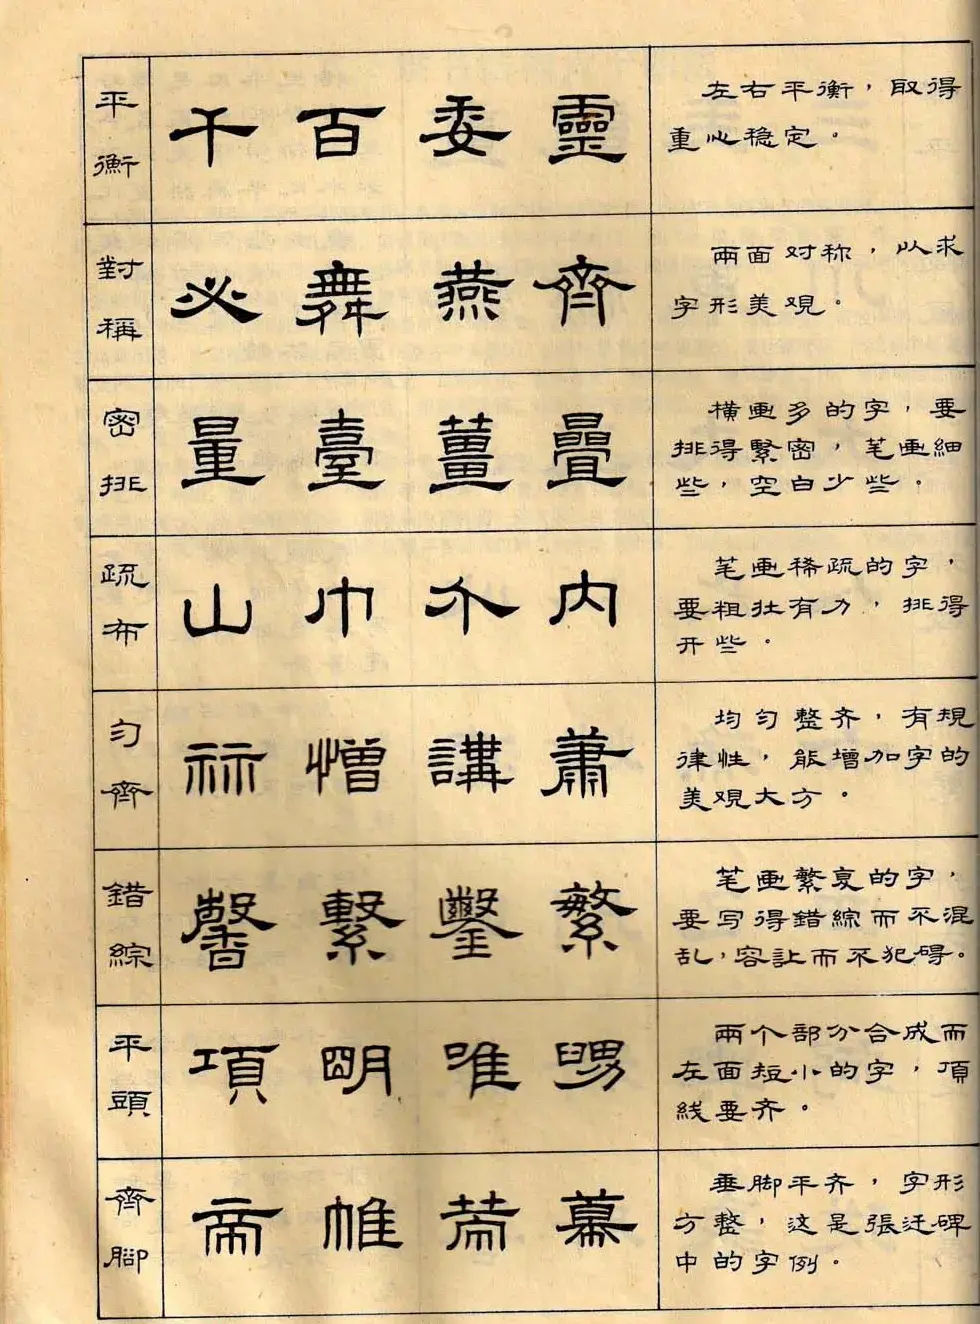 平衡
千百委靈
左右平衡，取得
重心稳定。
對稱
必舞燕齊
兩面对称，以求
字形美观。
密排
量臺薑疊
横画多的字，要
排得緊密，笔画細
些，空白少些。
疏布
山巾介内
笔画稀疏的字，
要粗壮有力，排得
开些。
匀齊
憎講蕭
均匀整齐，有规
律性，能增加字的
美观大方。
錯綜
馨繫鑿繁
笔画繁复的字，
要写得錯綜而不混
乱，容让而不犯碍。
平頭
項明唯
兩个部分合成而
左面短小的字，頂
线要齐。
齊脚
帝帷幕
垂脚平齐，字形
方整，这是張迁碑
中的字例。